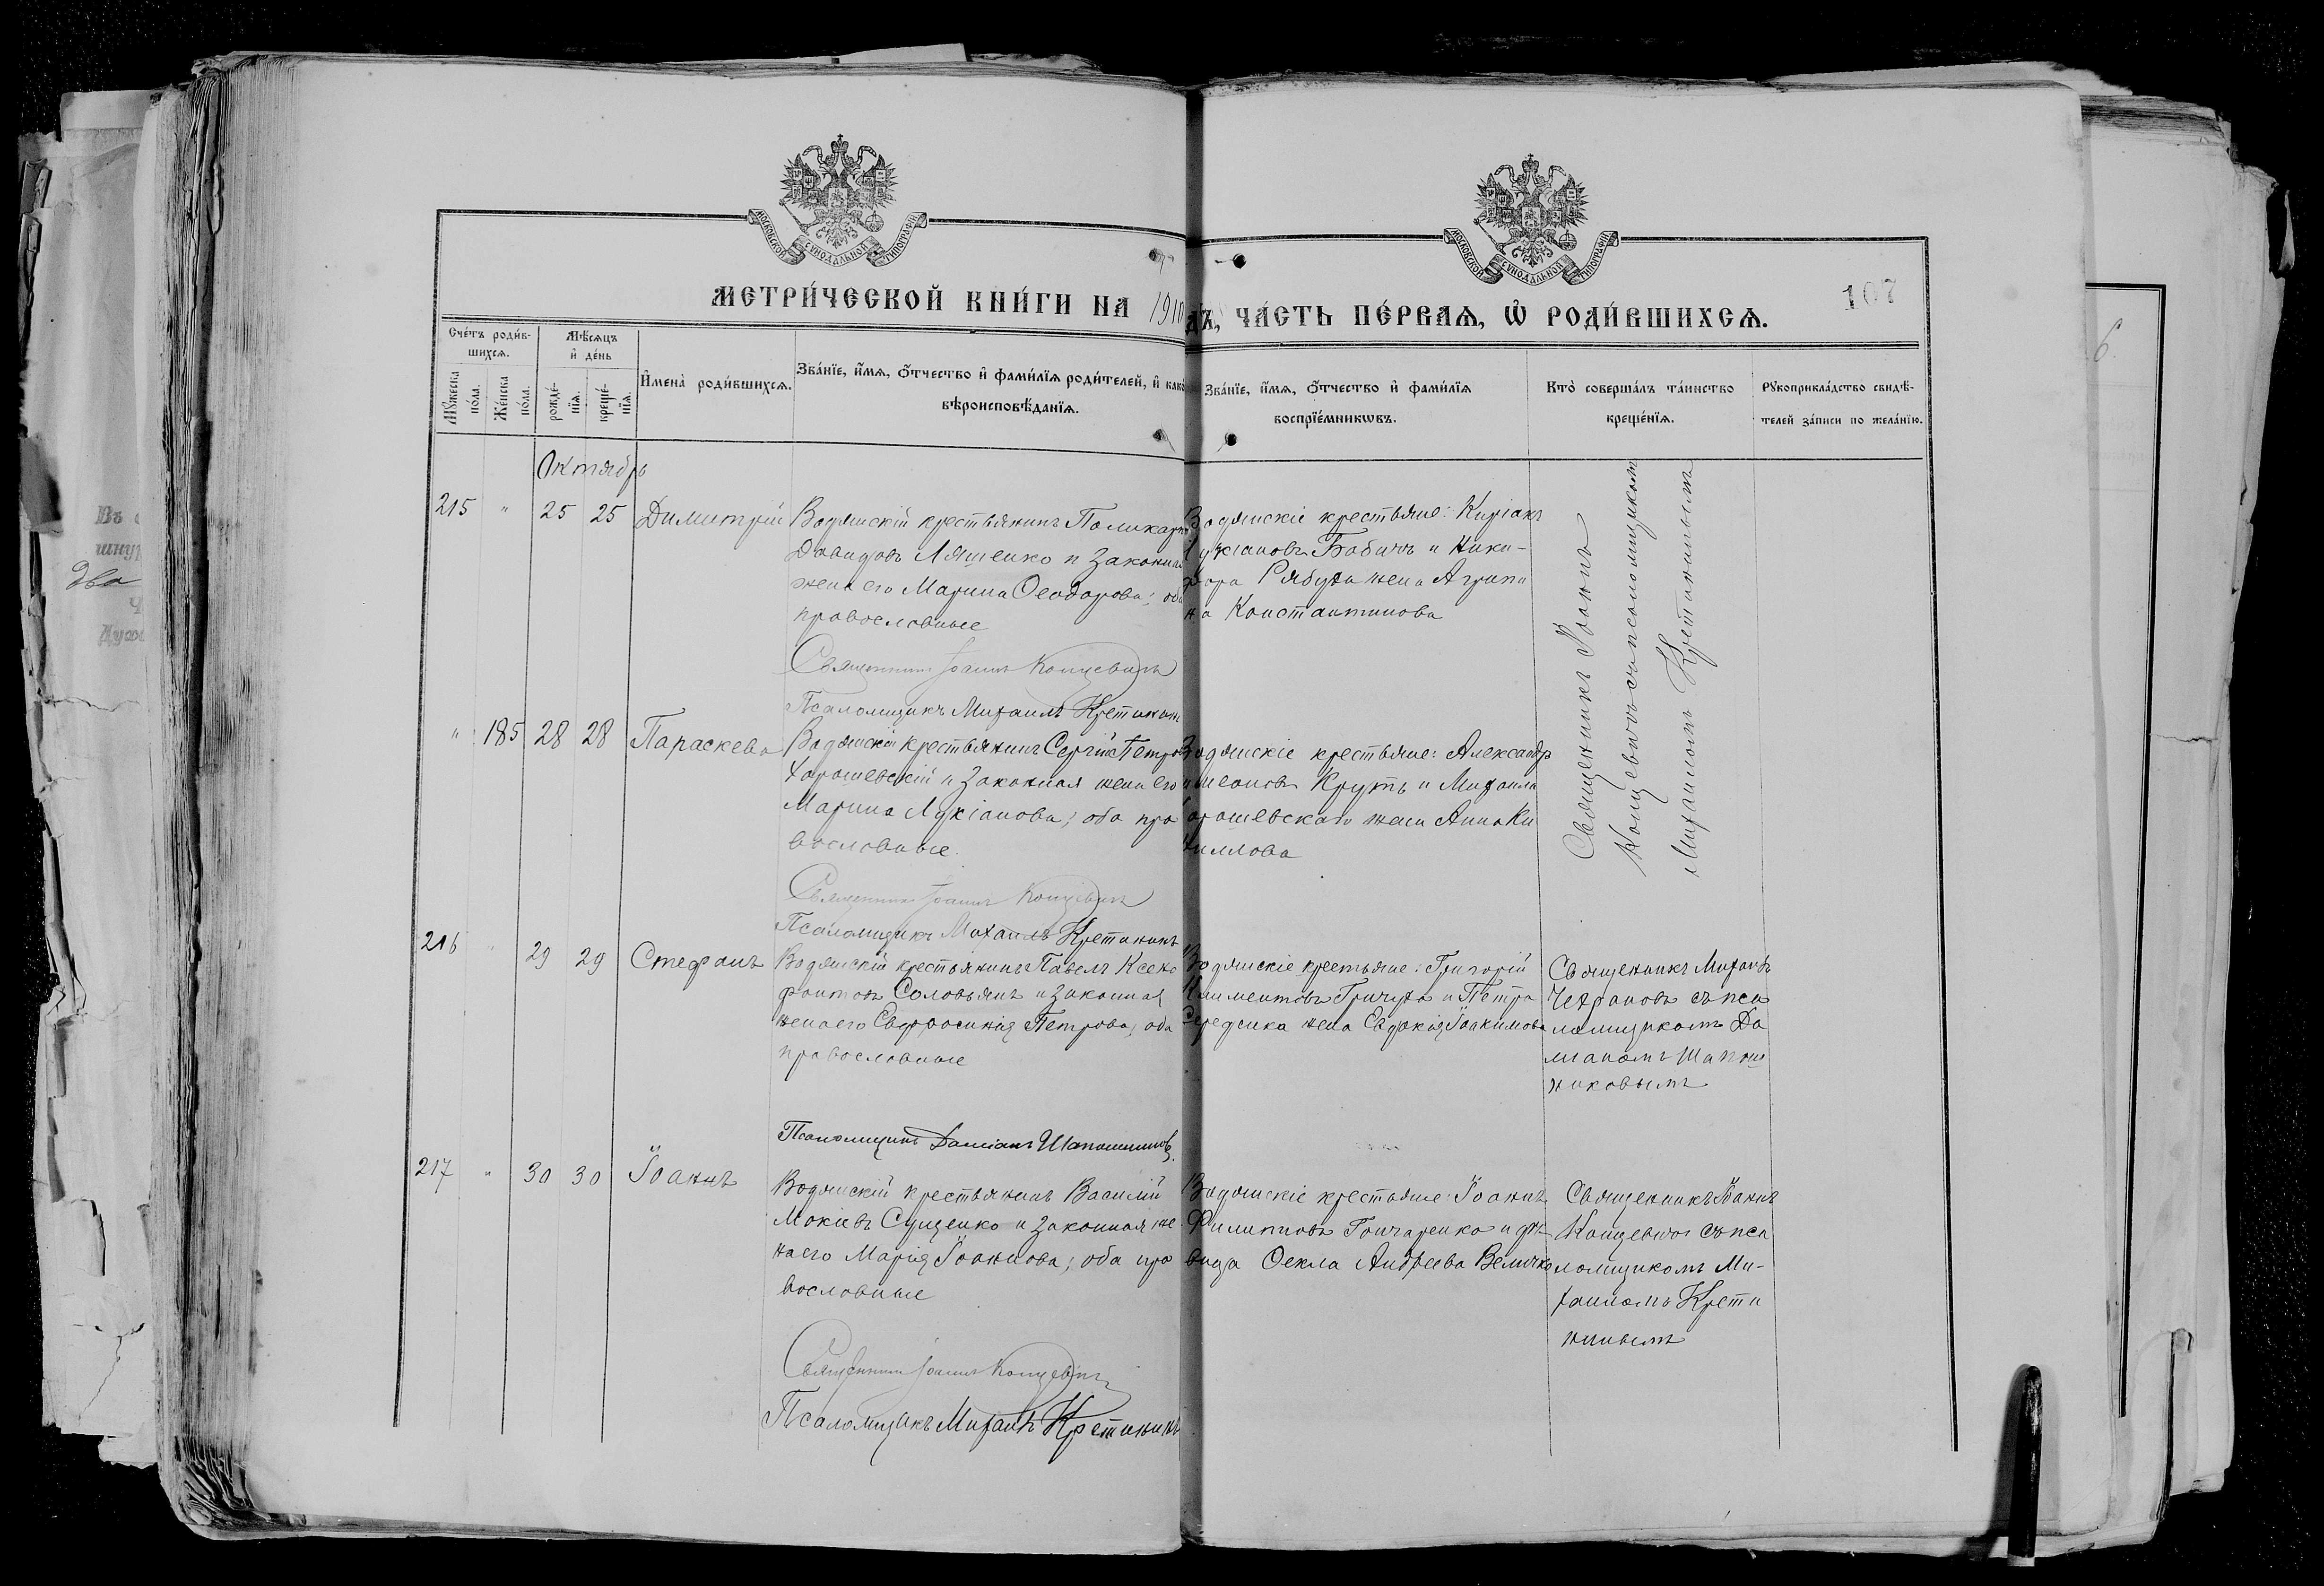 МОСКОВСКОЙ СѴНОДАЛЬНОЙ ТИПОГРАФІИ
МОСКОВСКОЙ СѴНОДАЛЬНОЙ ТИПОГРАФІИ
107
МЕТРИ́ЧЕСКОЙ КНИ́ГИ НА 1910
ДЪ, ЧА́СТЬ ПЕ́РВАѦ, Ѡ҆ РОДИ́ВШИХСѦ.
Сче́тъ роди́в-
шихсѧ.
Мѣ́сѧцъ
и҆ де́нь
Мꙋ́жеска
по́ла.
Же́нска
по́ла.
рожде́-
нїѧ.
креще́-
нїѧ.
И҆мена̀ роди́вшихсѧ.
Зва́нїе, и҆́мѧ, ѻ҆́тчество и҆ фами́лїѧ роди́телей, и҆ како
вѣроисповѣ́данїѧ.
Зва́нїе, и҆́мѧ, ѻ҆́тчество и҆ фами́лїѧ
воспрїе́мникѡвъ.
Кто̀ соверша́лъ та́инство
креще́нїѧ.
Рꙋкоприкла́дство свидѣ́-
телей за́писи по жела́нїю.
Октябрь
215 " 25 25 Димитрій
Водянскій крестьянинъ Поликарпъ
Давидовъ Лященко и законная
жена его Марина Ѳеодорова; оба
православные
Священникъ Іоаннъ Концевичъ
Псаломщикъ Михаилъ Кретининъ
Водянскіе крестьяне: Киріакъ
Лукіановъ Бабичъ и Ники-
фора Рябухи жена Агрипи
на Константинова
Священникъ Іоаннъ
Концевичъ съ псаломщикомъ
Михаиломъ Кретининымъ
" 185 28 28 Параскева
Водянскій крестьянинъ Сергій Петровъ
Харошевскій и законная жена его
Марина Лукіанова; оба пра
вославные.
Священникъ Іоаннъ Концевичъ
Псаломщикъ Михаилъ Кретининъ
Водянскіе крестьяне: Александръ
Симеоновъ Круть и Михаила
Харошевскаго жена Анна Ки
риллова
216 " 29 29 Стефанъ
Водянскій крестьянинъ Павелъ Ксено
фонтовъ Соловьянъ и законная
жена его Евфросинія Петрова; оба
православные
Псаломщикъ Даміанъ Шапошниковъ
Водянскіе крестьяне: Григорій
Климентовъ Гричуха и Петра
Середенка жена Евдокія Іоакимова
Священникъ Михаилъ
съ пса
ломщикомъ Да
міаномъ Шапош
никовымъ
217 " 30 30 Іоаннъ
Водянскій крестьянинъ Василій
Мокіевъ Сущенко и законная же
на его Марія Іоаннова; оба пра
вославные
Священникъ Іоаннъ Концевичъ
Псаломщикъ Михаилъ Кретининъ
Водянскіе крестьяне: Іоаннъ
Филипповъ Гончаренко и дѣ
вица Ѳекла Андреева Величко
Священникъ Іоаннъ
Концевичъ съ пса
ломщикомъ Ми-
хаиломъ Крети
нинымъ